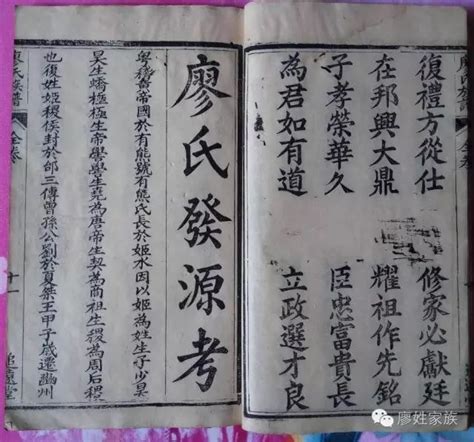 復禮方從仕 修家必獻廷
在邦興大鼎 耀祖作先銘
子孝榮華久 臣忠富貴長
為君如有道 立政選才良
廖氏發源考
粵稽黃帝國於有熊號有熊氏長於姬水因以姬為姓生子少昊
昊生蟜極極生帝嚳嚳生堯為唐帝生契為商祖生稷為周后稷
也復姓姬稷侯封於邰三傳曾孫公劉於夏桀王甲子歲遷豳州
廖氏族譜 全卷 十一 追遠堂
廖姓家族